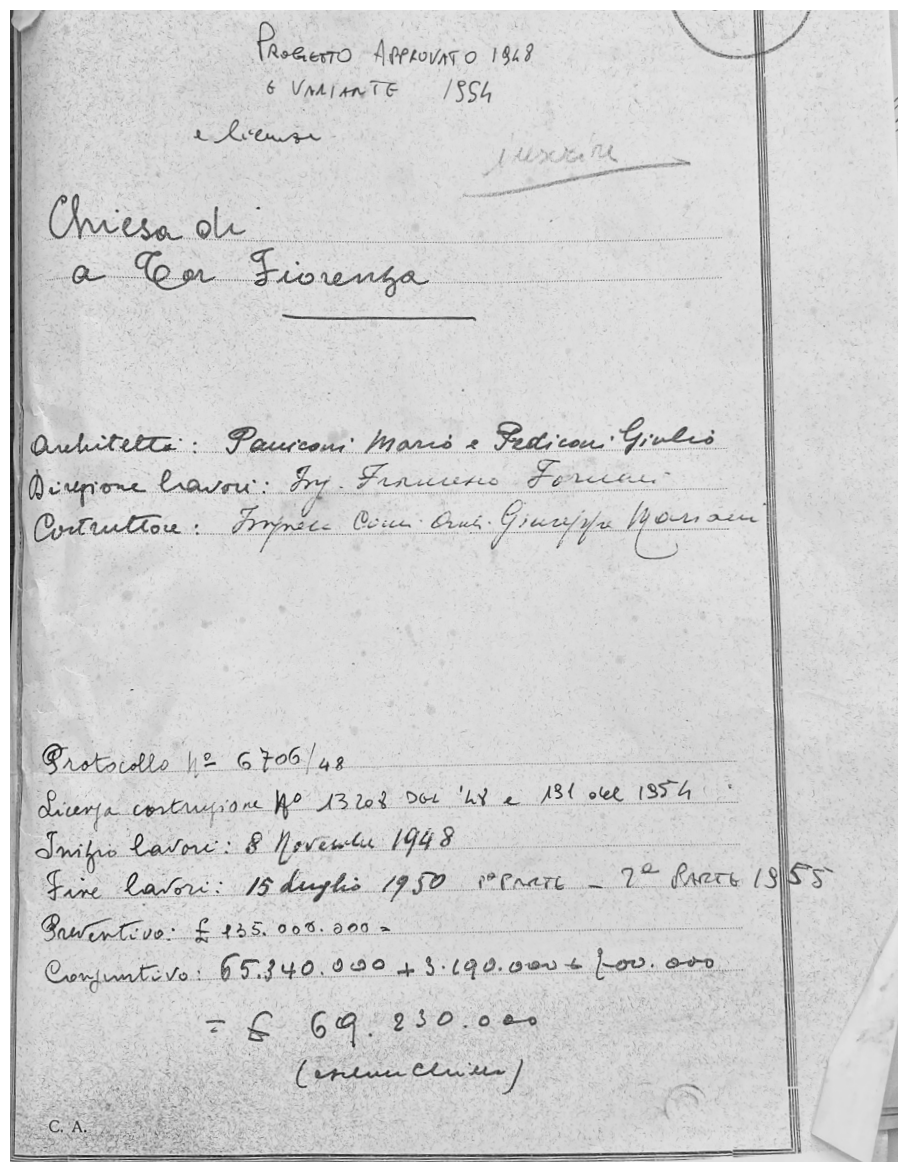 PROGETTO APPROVATO 1948
E VARIANTE 1954
e licenze
inserire
Chiesa di
a Tor Fiorenza
Architetti: Paniconi Mario e Pediconi Giulio
Direzione lavori: Ing. Francesco Fornari
Costruttore: Impresa Comm. Arch. Giuseppe Mariani
Protocollo No 6706/48
Licenza costruzione No 13208 DEL '48 e 191 del 1954
Inizio lavori: 8 Novembre 1948
Fine lavori: 15 Luglio 1950 1a PARTE - 2a PARTE 1955
Preventivo: £ 135.000.000=
Consuntivo: 65.340.000 + 3.190.000 + 700.000
= £ 69.230.000
C. A.